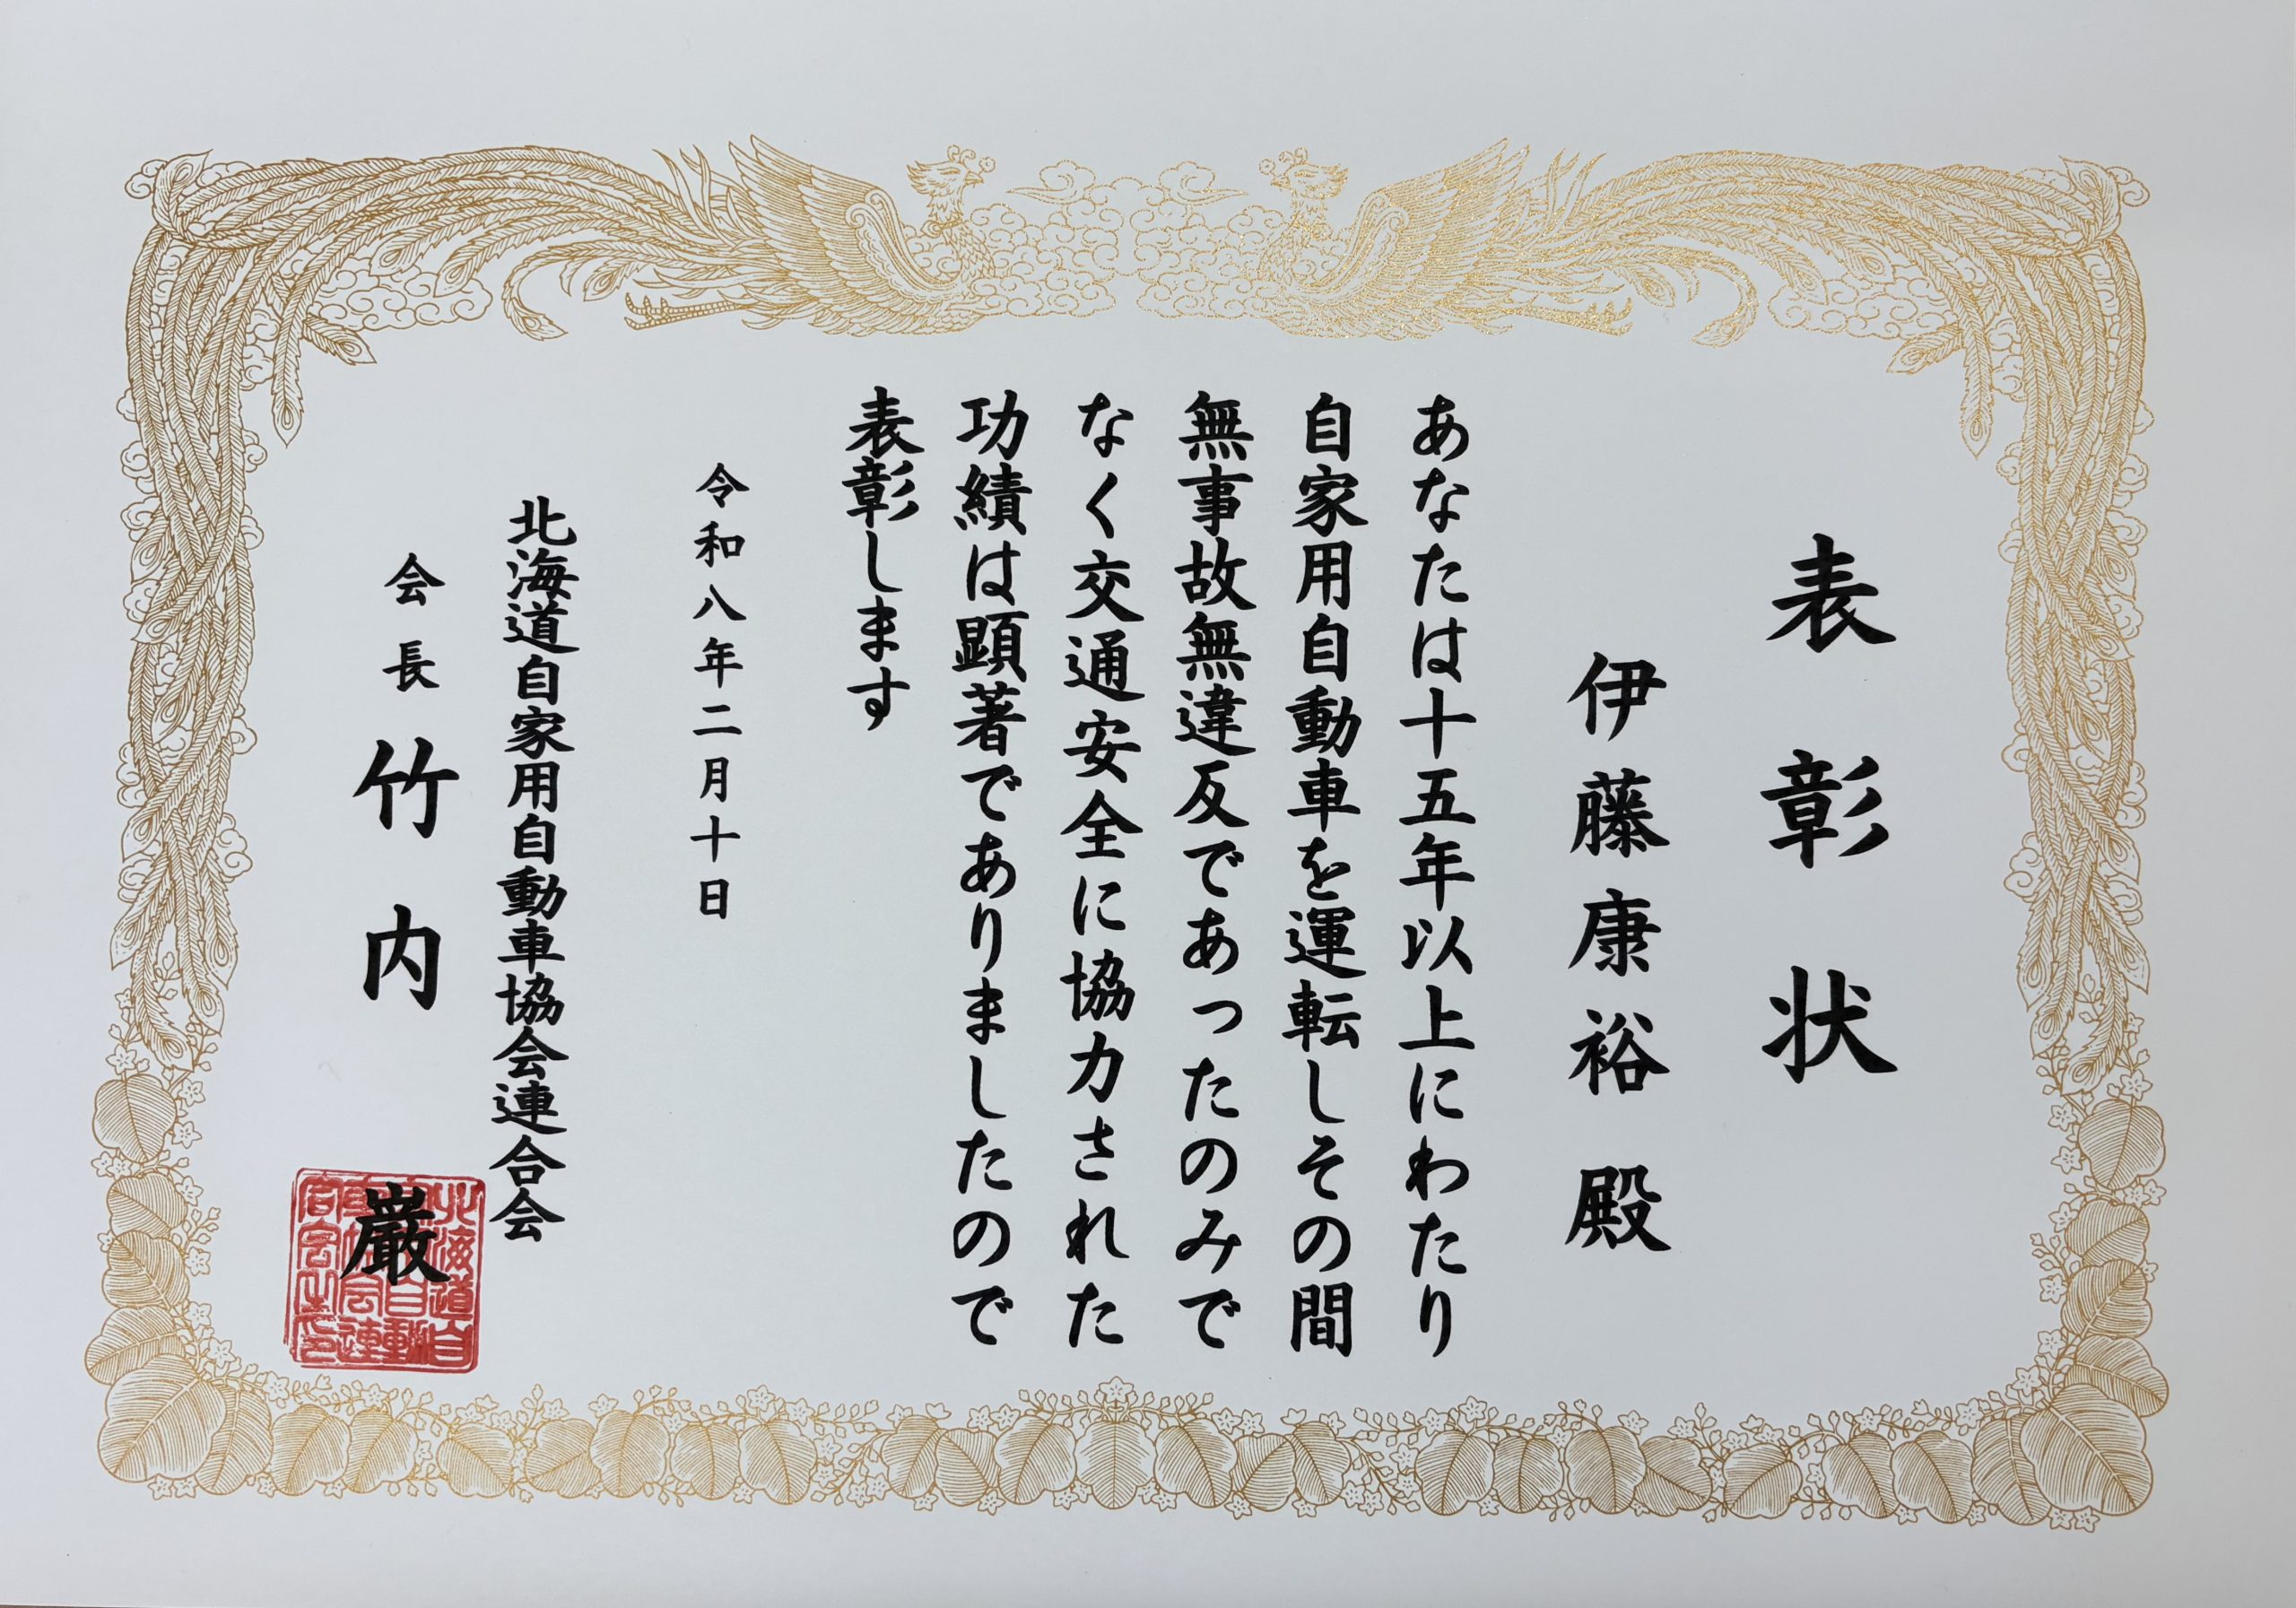 表彰状
伊藤康裕殿
あなたは十五年以上にわたり
自家用自動車を運転しその間
無事故無違反であったのみで
なく交通安全に協力された
功績は顕著でありましたので
表彰します
令和八年二月十日
北海道自家用自動車協会連合会
会長 竹内 巌